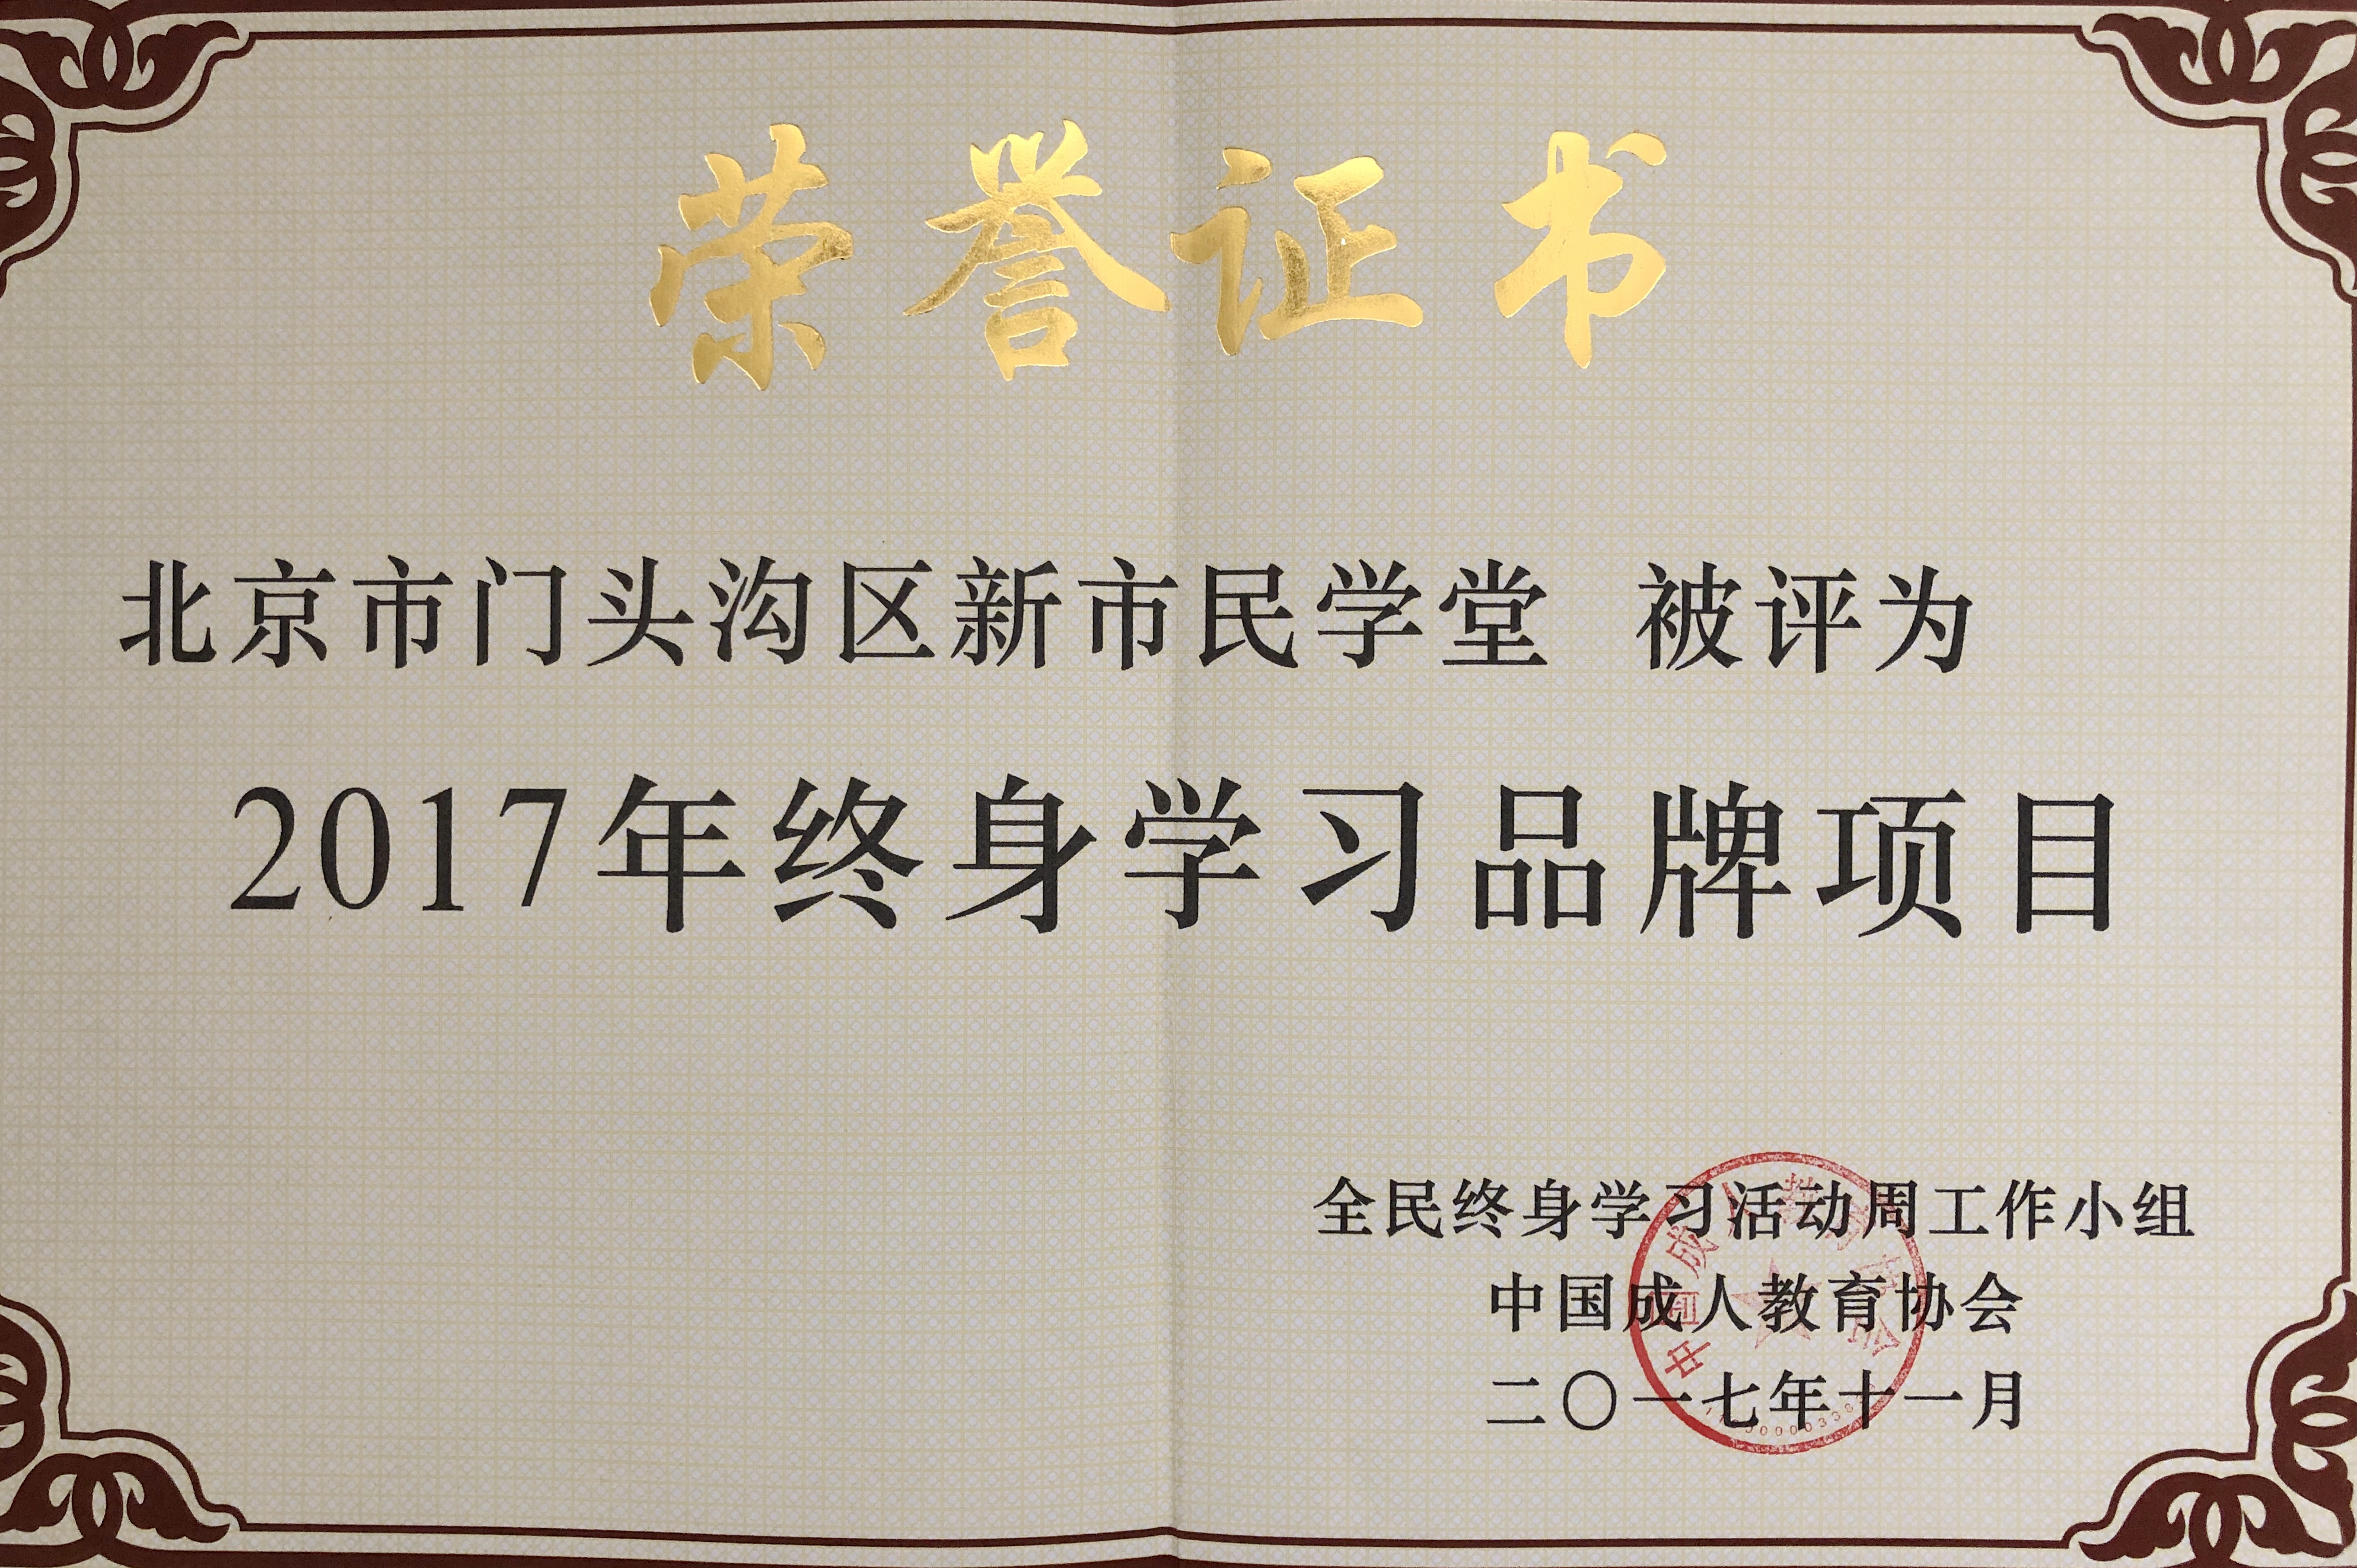 荣誉证书
北京市门头沟区新市民学堂 被评为
2017年终身学习品牌项目
全民终身学习活动周工作小组
中国成人教育协会
二〇一七年十一月